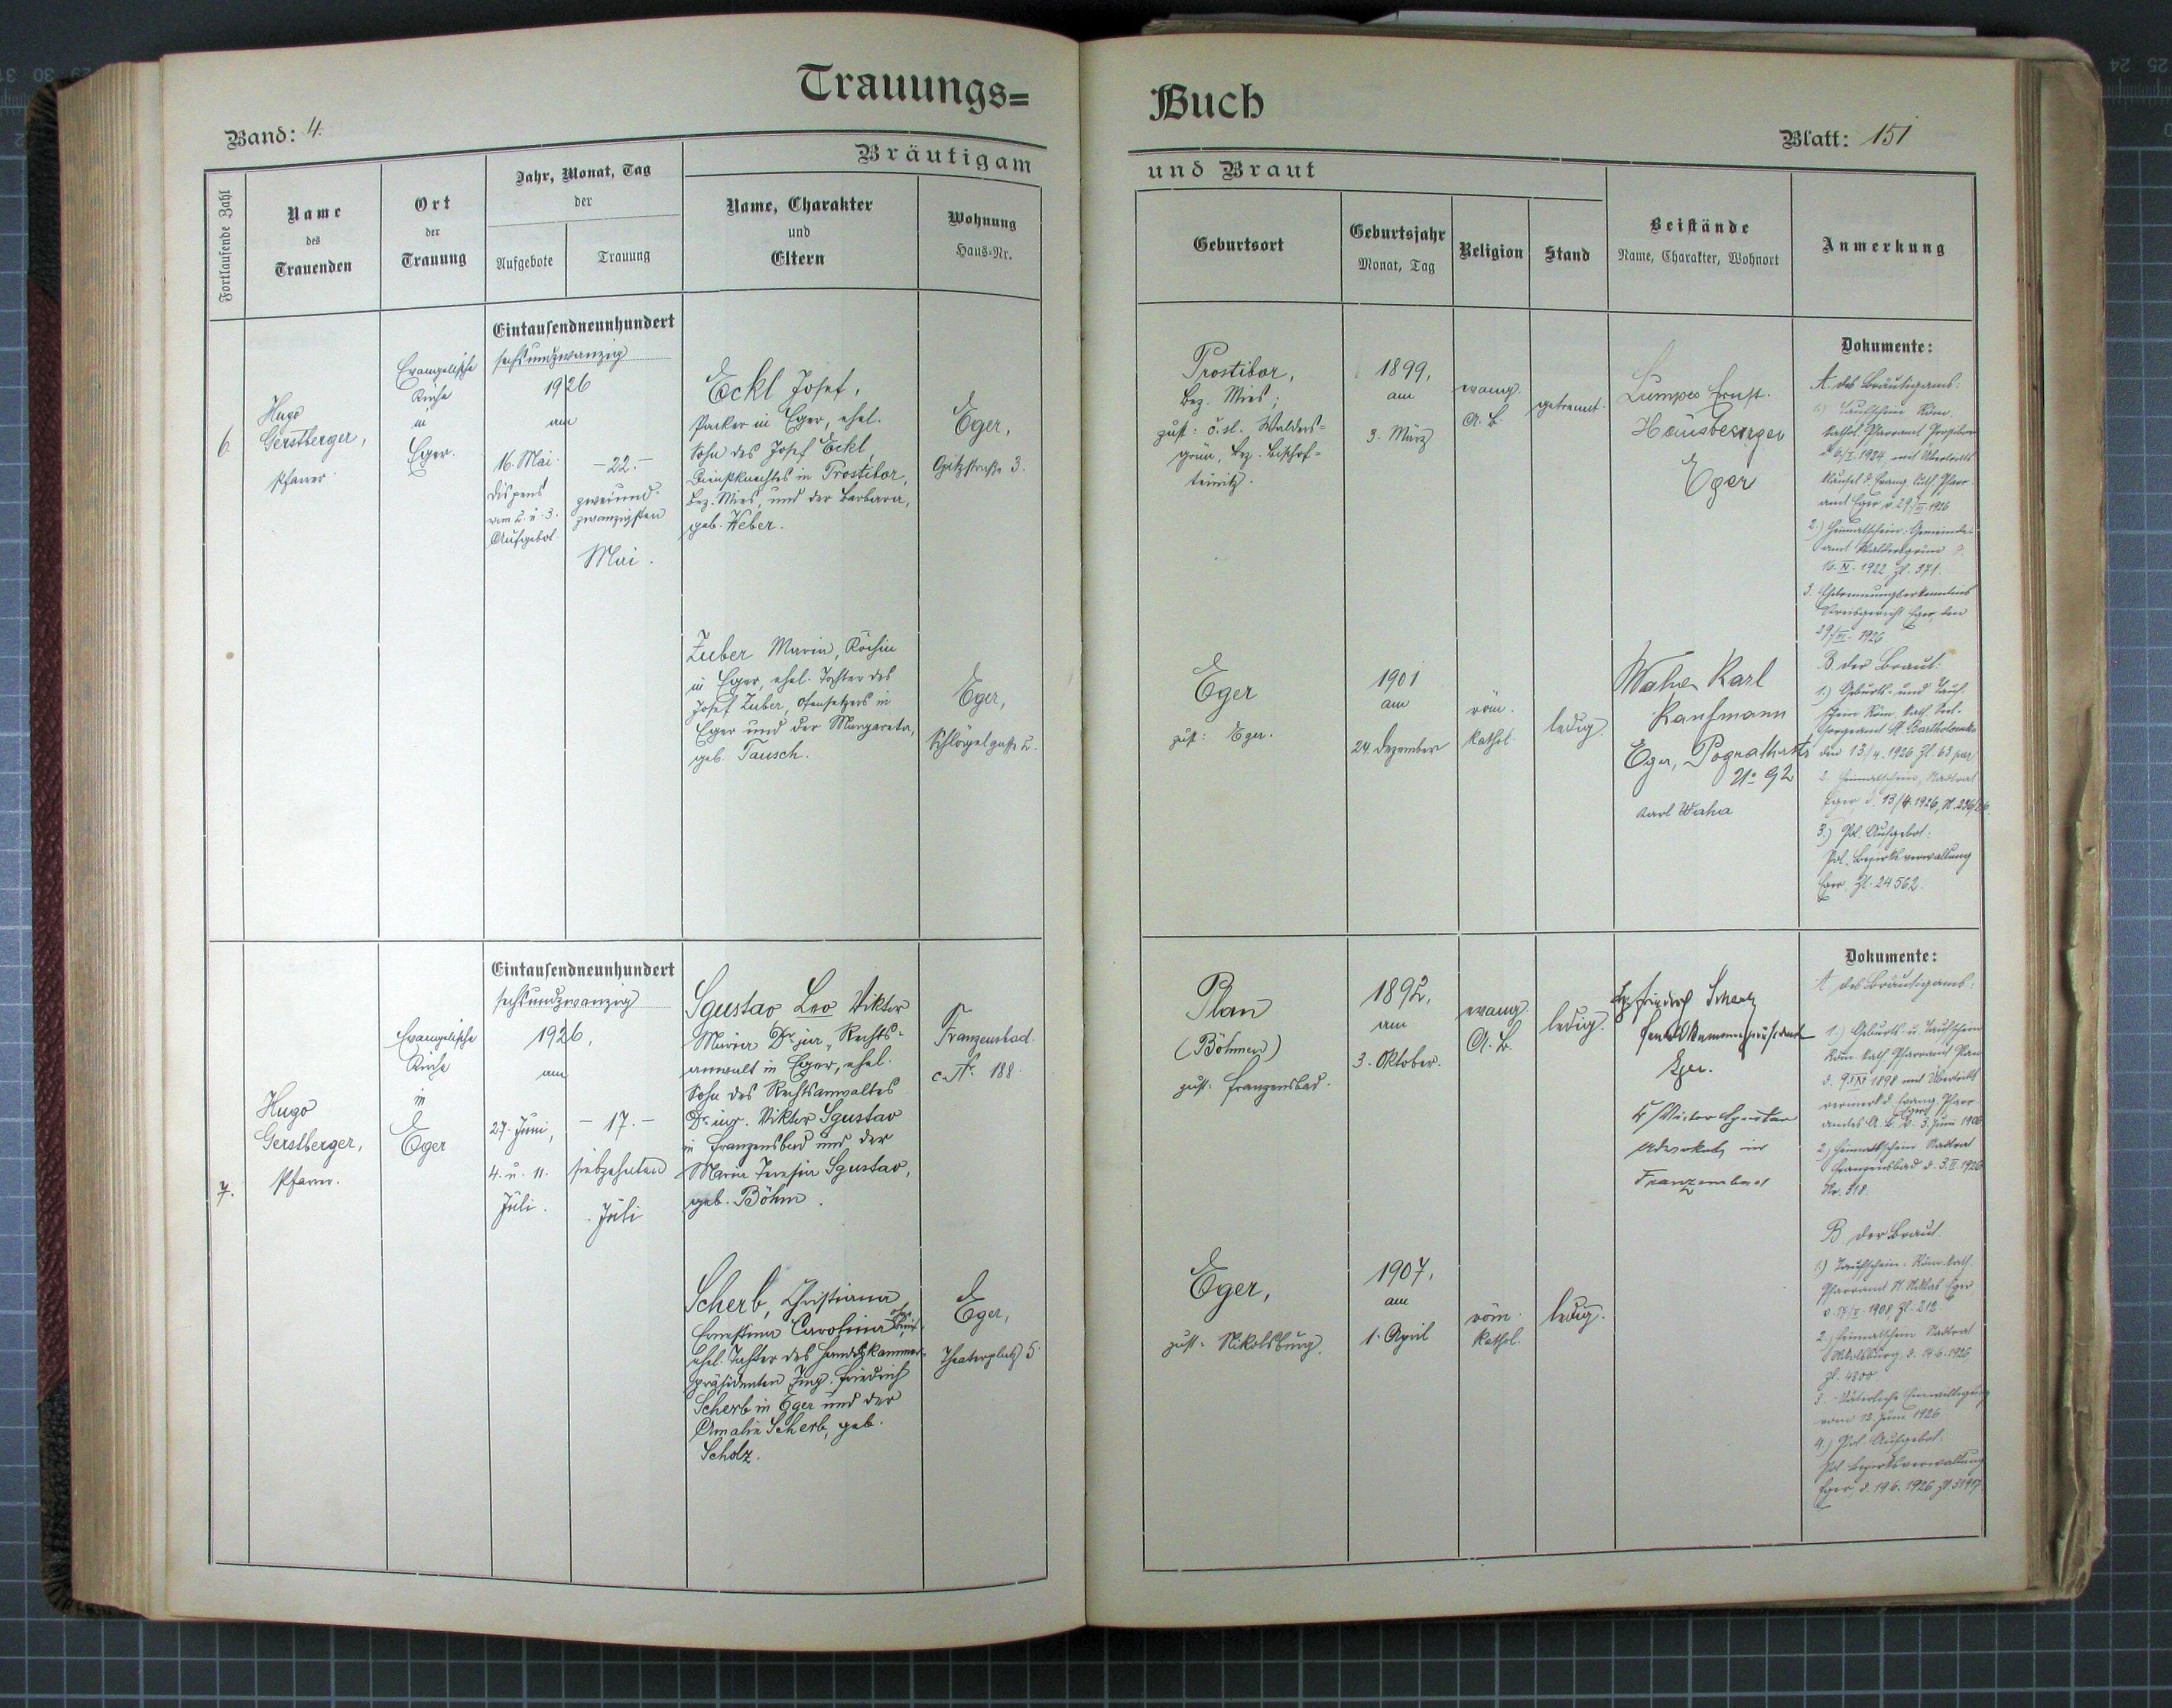 Trauungs=
Band: 4.
Bräutigam
Fortlaufende Zahl
Name
des
Trauenden
Ort
der
Trauung
Jahr, Monat, Tag
der
Aufgebote
Trauung
Name, Charakter
und
Eltern
Wohnung
Haus=Nr.
6.
Hugo
Gerstberger,
Pfarrer
Evangelische
Kirche
in
Eger.
Eintausendneunhundert
sechsundzwanzig
1926
am
16. Mai.
Dispens
vom 2. u. 3.
Aufgebot
-22.-
zweiund-
zwanzigsten
Mai.
Eckl Josef,
Packer in Eger, ehel.
Sohn des Josef Eckl,
Dienstknechtes in Prostibor,
Bez. Mies, und der Barbara,
geb. Weber.
Eger,
Opitzstraße 3.
Zuber Maria, Köchin
in Eger, ehel. Tochter des
Josef Zuber, Ofensetzers in
Eger und der Margareta,
geb. Tausch.
Eger,
Schlögelgasse 2.
7.
Hugo
Gerstberger,
Pfarrer.
Evangelische
Kirche
in
Eger
Eintausendneunhundert
sechsundzwanzig
1926,
am
27. Juni,
4. u. 11.
Juli.
- 17. -
siebzehnten
Juli
Sgustav Leo Viktor
Maria Dr. jur., Rechts-
anwalt in Eger, ehel.
Sohn des Rechtsanwaltes
Dr. jur. Viktor Sgustav
in Franzensbad und der
Maria Theresia Sgustav,
geb. Böhm.
Franzensbad.
c. Nr. 188.
Scherb, Christiana
Ernestina Carolina
ehel. Tochter des Handelskammer-
präsidenten Ing. Friedrich
Scherb in Eger und der
Amalie Scherb, geb.
Scholz.
Eger,
Theaterplatz 5.
Buch
Blatt: 151
und Braut
Geburtsort
Geburtsjahr
Monat, Tag
Religion
Stand
Beistände
Name, Charakter, Wohnort
Anmerkung
Prostibor,
Bez. Mies;
zust: č. sl. Walders-
grün, Bez. Bischof-
teinitz.
1899,
am
3. März
evang.
A. B.
getrennt.
Lumpe Ernst.
Hausbesorger
Eger
Dokumente:
A. des Bräutigams:
1.) Taufschein Röm.
kathol. Pfarramt Prostibor
1924 mit Übertritts
klausel d. Evang. luth. Pfarr-
amt Eger, 1926
2.) Heimatschein: Gemeinde-
amt Waldersgrün
16. IV. 1922 Zl. 371.
3. Ehetrennungserkenntnis
Kreisgericht Eger, den
1926.
Eger
zust: Eger.
1901
am
24. Dezember
röm.
kathol.
ledig.
Waha Karl
Kaufmann
Eger,
No 92
Karl Waha
B. der Braut:
1.) Geburts- und Tauf-
schein Röm. kath. Seel-
sorgeamt St. Bartholomäus
den 13/4. 1926 Zl. 63
2. Heimatschein, Stadtrat
Eger d. 13/4. 1926,
3.) Pol. Aufgebot:
Pol. Bezirksverwaltung
Eger, Zl. 24562.
Plan
(Böhmen)
zust. Franzensbad.
1892,
am
3. Oktober.
evang.
A. B.
ledig.
Ing. Friedrich Scherb
Handelskammerpräsident
Eger.
Dr Victor Sgustav
Advokat in
Franzensbad
Dokumente:
A. des Bräutigams:
1.) Geburts- u. Taufschein
Röm. kath. Pfarramt Plan
1898 mit Übertritts
vermerk d. Evang. Pfarr-
amtes A. B. Eger v. 3. Juni
2.) Heimatschein Stadtrat
Franzensbad d. 3. II. 1926
Nr. 318.
Eger,
zust. Nikolsburg.
1907,
am
1. April
röm.
kathol.
ledig.
B. der Braut.
1.) Taufschein: Röm. kath.
Pfarramt St. Niklas Eger
1908, Zl. 212
2. Heimatschein Stadtrat
Nikolsburg, d. 14.6.1926,
Zl. 4800
3. Väterliche Einwilligung
vom 12. Juni 1926
4.) Pol. Aufgebot:
Pol. Bezirksverwaltung
Eger, d. 19.6.1926